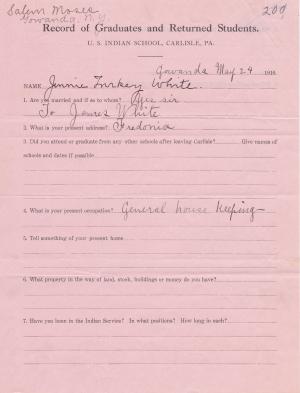 Salem Moses
Gowanda, N.Y.
209
Record of Graduates and Returned Students.
U. S. INDIAN SCHOOL, CARLISLE, PA.
Gowanda May 24 1910.
NAME Jennie Turkey White.
1. Are you married and if so to whom? Yes sir
To James White
2. What is your present address? Fredonia
3. Did you attend or graduate from any other schools after leaving Carlisle? Give names of
schools and dates if possible
4. What is your present occupation? General house Keeping
5. Tell something of your present home
6. What property in the way of land, stock, buildings or money do you have?
7. Have you been in the Indian Service? In what positions? How long in each?